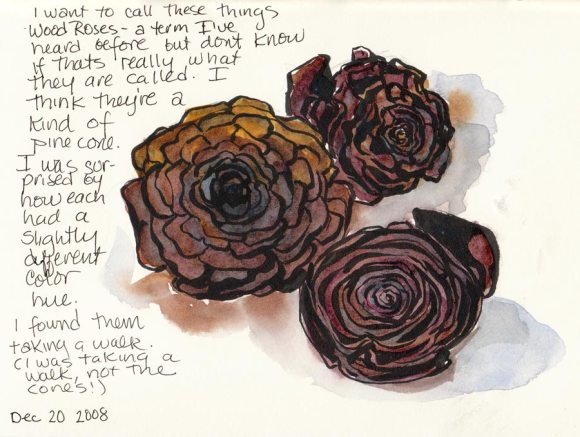 I want to call these things
Wood Roses - a term I've
heard before but dont know
if thats really what
they are called. I
think they're a
kind of
pine cone.
I was sur-
prised by
how each
had a
slightly
different
color
hue.
I found them
taking a walk.
(I was taking a
walk, not the
cones!)
Dec 20 2008